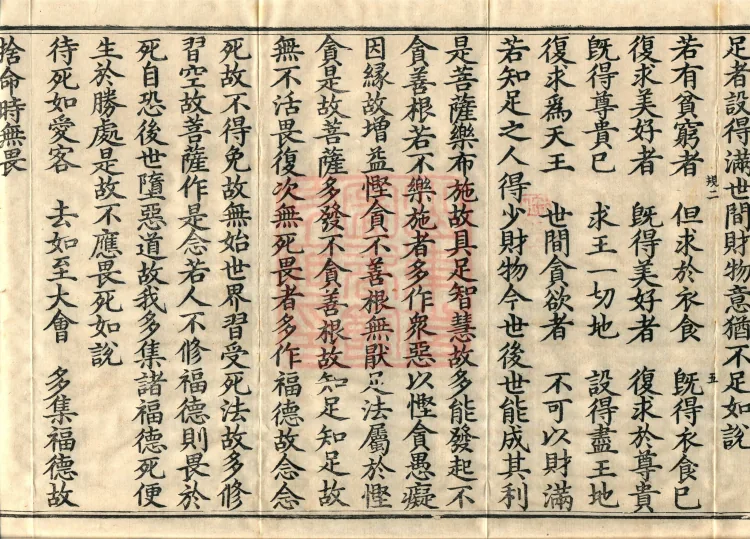 足者設得滿世間財物意猶不足如說
若有貧窮者　但求於衣食　既得衣食已
復求美好者　既得美好者　復求於尊貴
既得尊貴已　求王一切地　設得盡王地
復求爲天王　世間貪欲者　不可以財滿
若知足之人得少財物今世後世能成其利
是菩薩樂布施故具足智慧故多能發起不
貪善根若不樂施者多作衆惡以慳貪愚癡
因緣故增益慳貪不善根無猒足法屬於慳
貪是故菩薩多發不貪善根故知足知足故
無不活畏復次無死畏者多作福德故念念
死故不得免故無始世界習受死法故多修
習空故菩薩作是念若人不修福德則畏於
死自恐後世墮惡道故我多集諸福德死便
生於勝處是故不應畏死如說
待死如愛客　去如至大會　多集福德故
捨命時無畏
五